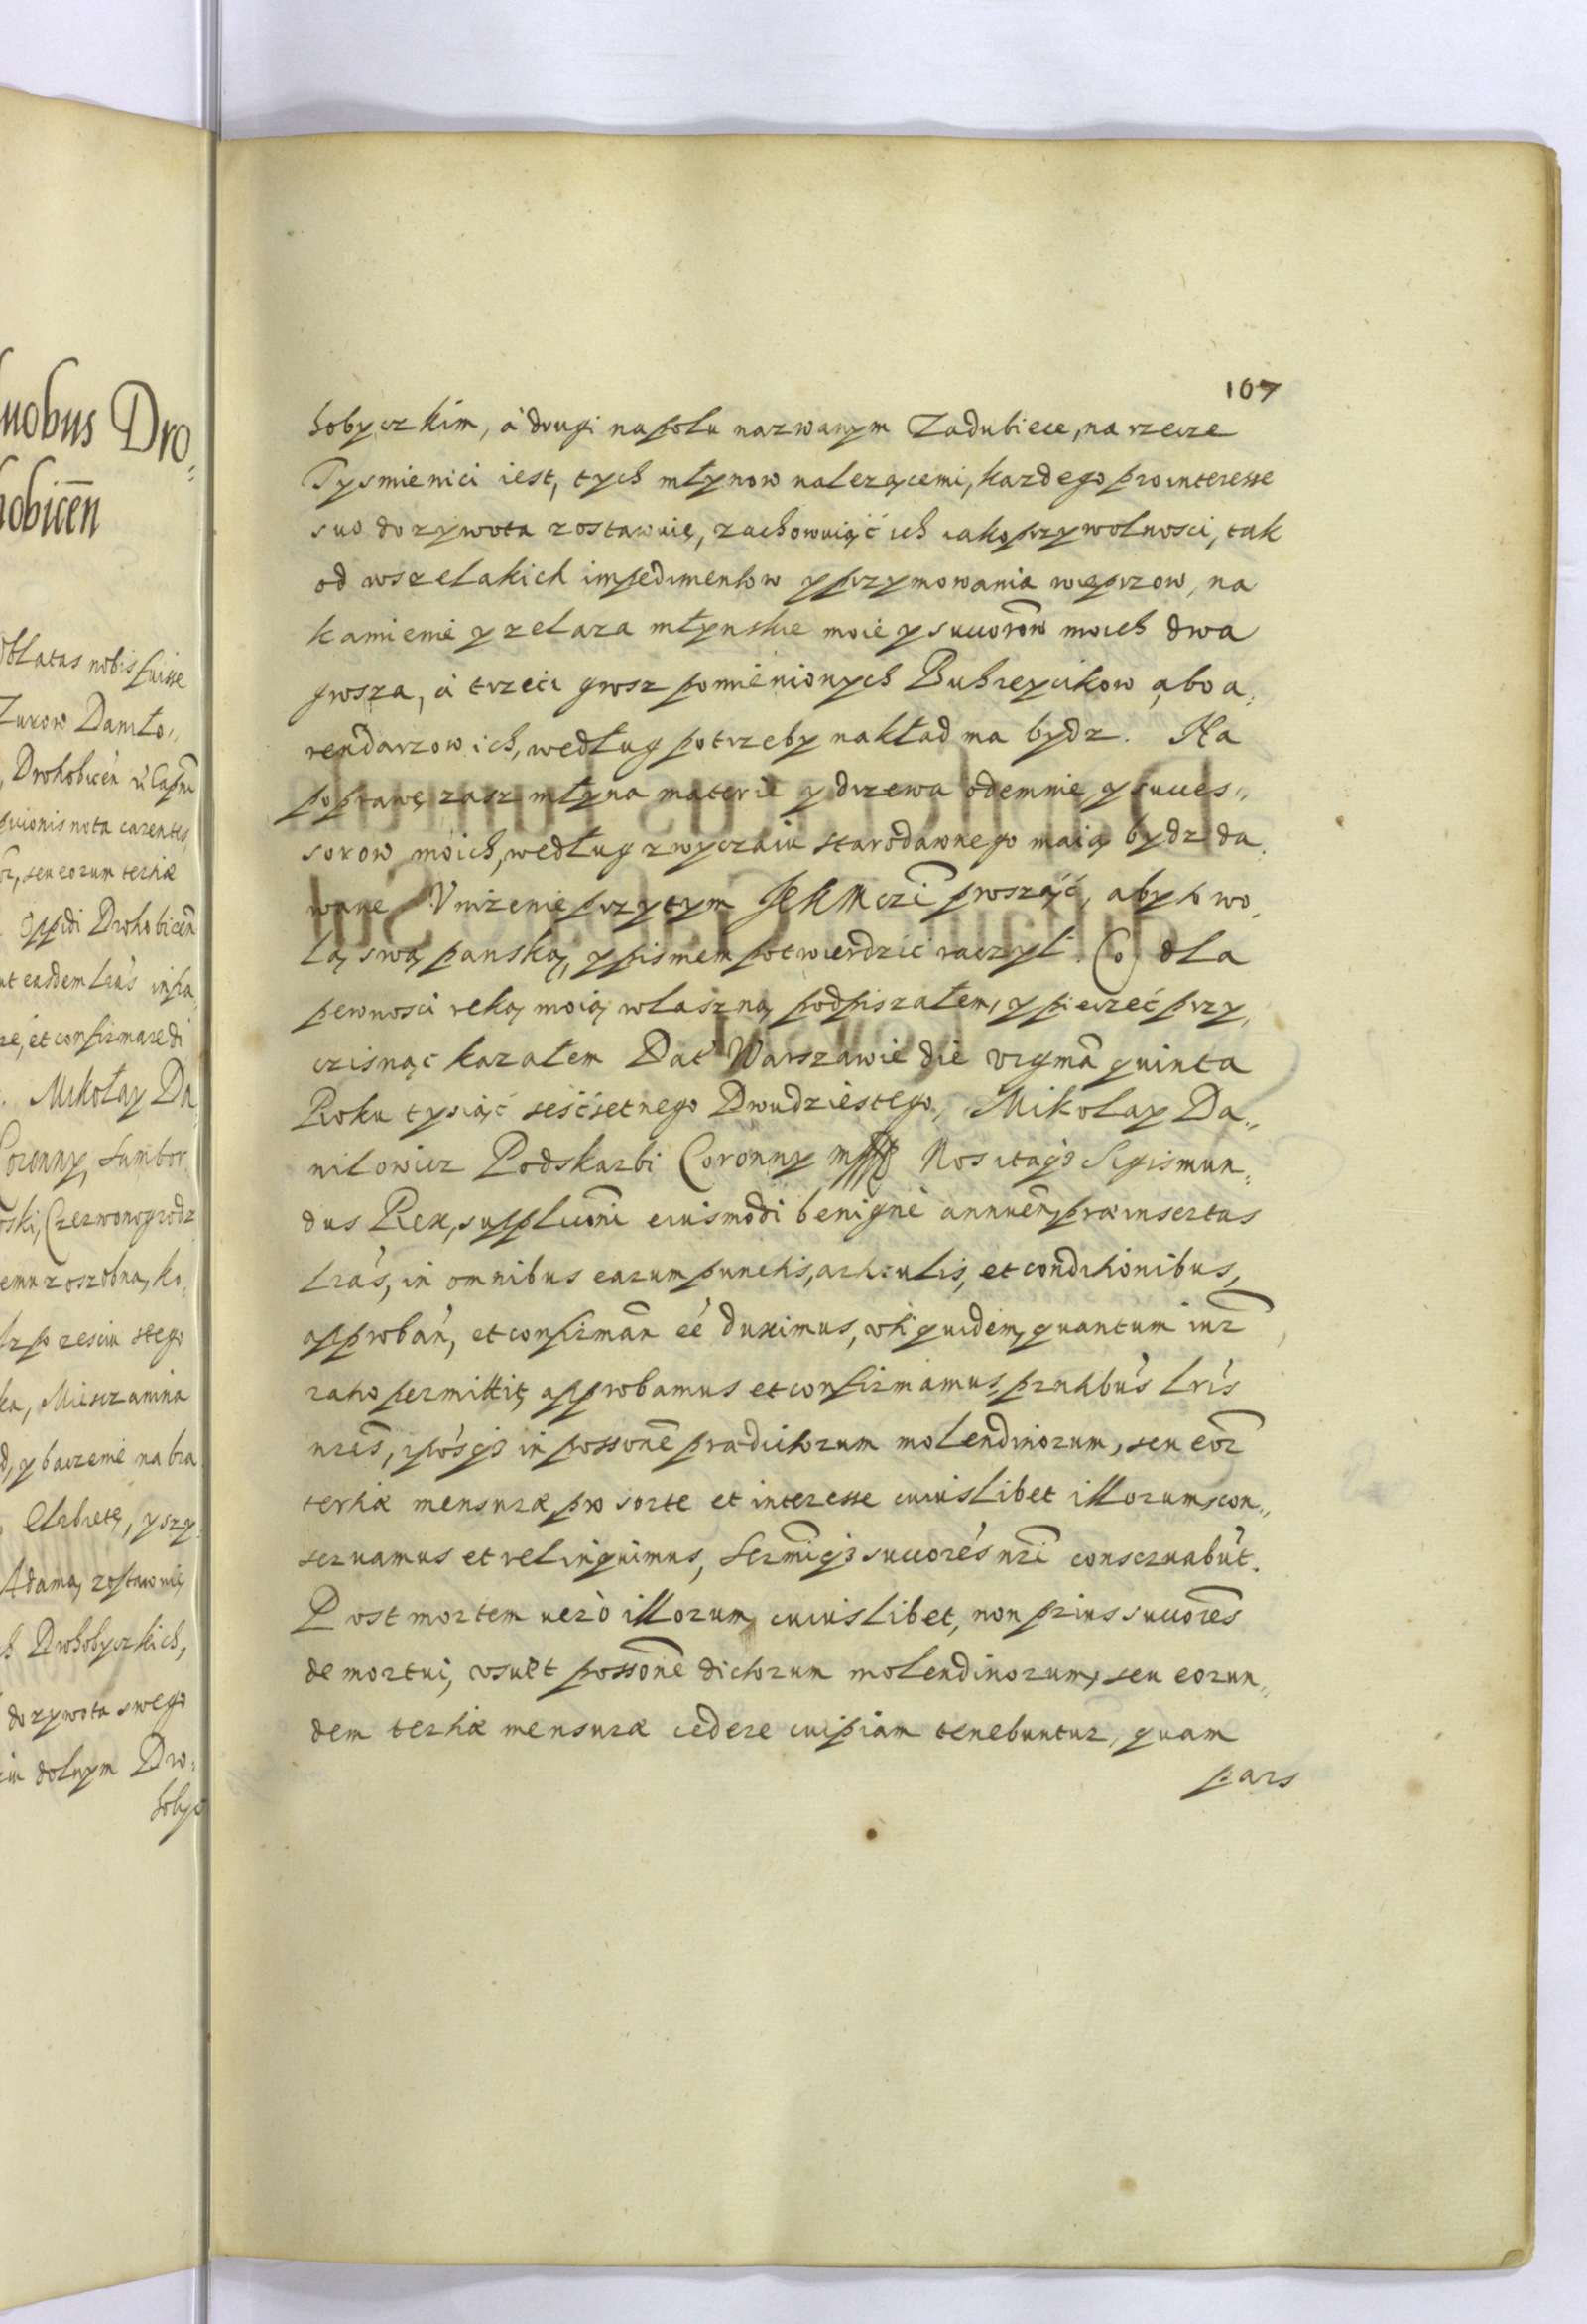 107
hobyczkim, á drugi na polu nazwanym Zadubiece, na rzecze
Tysmienici iest, tych młynow nalezącemi, kazdego pro interesse
suo do zywota zostawuię, zachowuiąć ich iako przy wolnosci, tak
od wszelakich impedimentow y przymowania wieprzow, na
kamienie y zelaza młynskie moie y succorōw moich dwa
grosza, á trzeci grosz pomienionych Buhreycikow abo a,
rendarzow ich, według potrzeby nakład ma bydz. Na
poprawę zasz młyna materie y drzewa odemnie y succes„
sorow moich, według zwyczaiu starodawnego maią bydz da,
wane Vnizenie przytym JeKMczi proszać, aby to wo,
lą swą panską, y pismem potwierdzić raczył. Co dla
pewnosci ręką moią własną podpiszałem, y pieczeć przy,
czisnąc kazałem Dat Warszawie die vigmā quinta
Roku tysiąć seśćsetnego Dwudziestego, Mikolay Da„
nilowicz Podskarbi Coronny mpp Nos itaq3 Sigismun„
dus Rex, supplicōni eiusmodi benigne annuen̄, præinsertas
Lrás, in omnibus earum punctis, articulis, et conditionibus,
approbán, et confirmān eé duximus, vti quidem, quantum iur̄
ratio permittit, approbamus et confirmamus, pr̄ntibus Lrís
nrīs, ipósq3 in possonē prædictorum molendinorum, seu eor̄
tertiæ mensuræ pro sorte et interesse cuiuslibet illorum, con„
seruamus et relinquimus, Sermīq3 succorés nrī conseruabūt.
Post mortem uerò illorum, cuiuslibet, non prius succorēs
demortui, vsu et possonē dictorum molendinorum, seu eorun„
dem tertiæ mensuræ cedere cuipiam tenebuntur, quam
pars
nobus Dro„
hobicēn
oblatas nobis fuisse
Zurow Daniło„
Drohobicén
carentes,
seu eorum tertiæ
oppidi Drohobicēn
ut easdem Lrás infra
re, et confirmare di
Mikołay Da
Coronny, Sambor
Czerwonogrodz
ko,
stego
ka, Mieszczanina
y baczenie na bra
Elzbietę, y szy
Adama, zostawuię
h Drohobyczkich,
do zywota swego
dolnym Dro„
hobycz